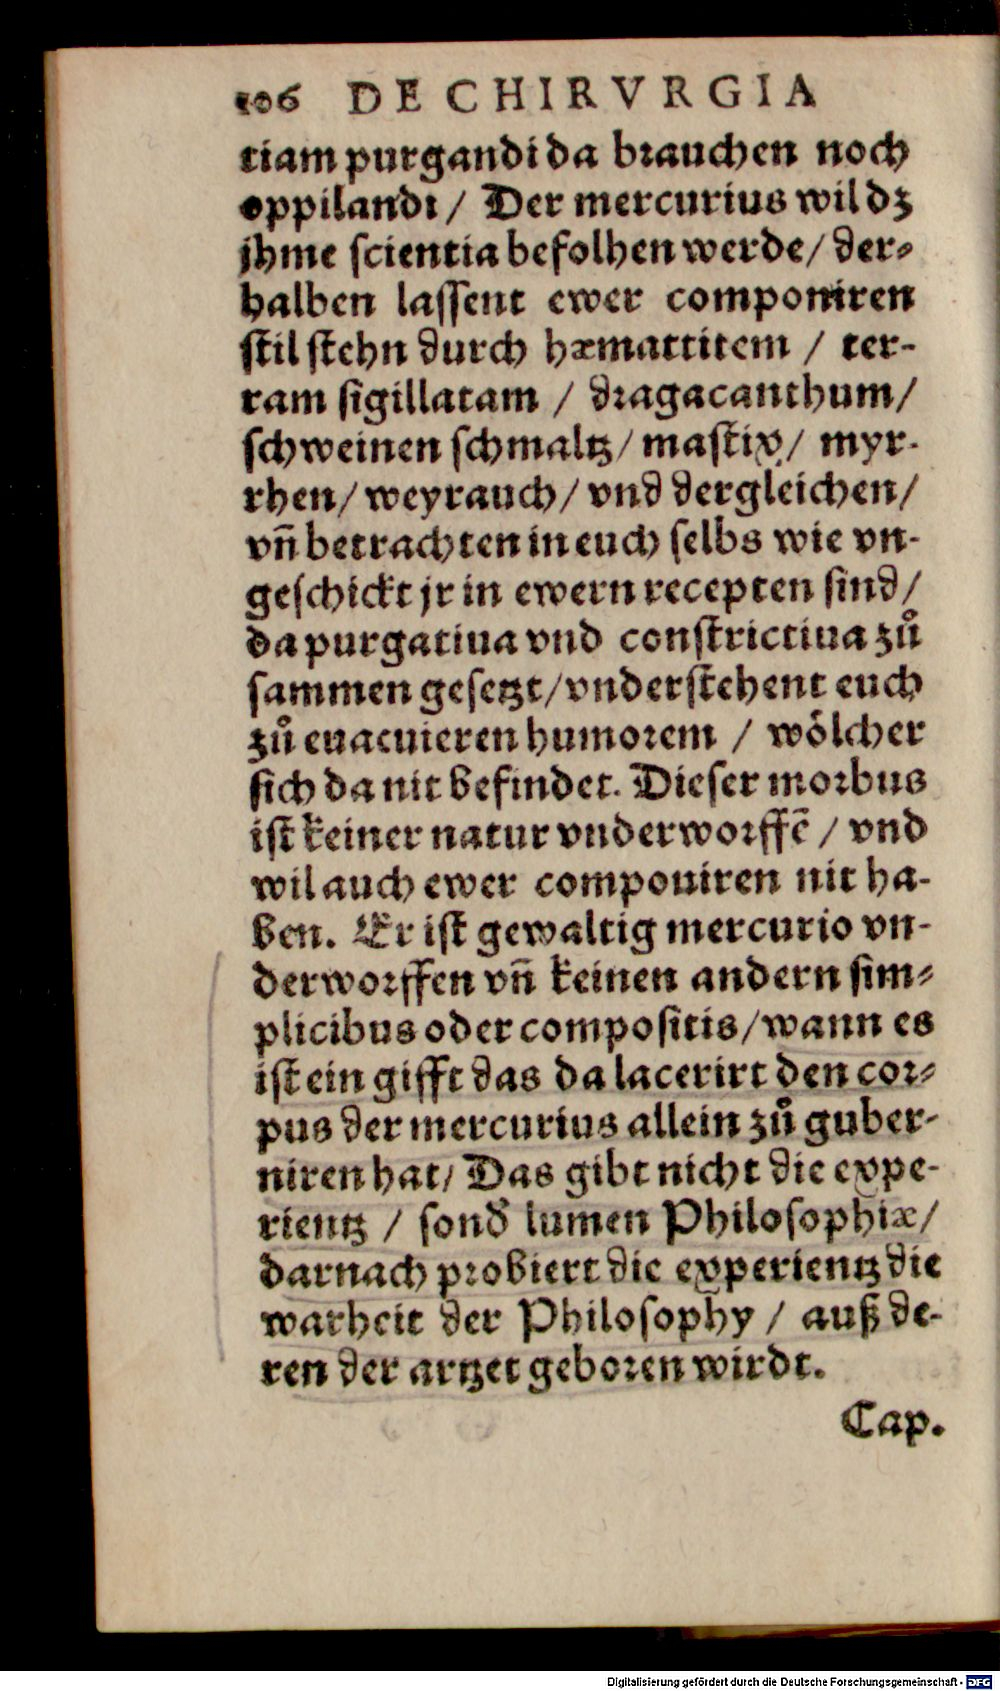 106 DE CHIRVRGIA
tiam purgandi da brauchen noch
oppilandi / Der mercurius wil dz
jhme scientia befolhen werde / der⸗
halben lassent ewer componiren
stil stehn durch hæmattitem / ter-
ram sigillatam / dragacanthum /
schweinen schmaltz / mastix / myr-
rhen / weyrauch / vnd dergleichen /
vñ betrachten in euch selbs wie vn-
geschickt jr in ewern recepten sind /
da purgatiua vnd constrictiua zuͦ
sammen gesetzt / vnderstehent euch
zuͦ euacuieren humorem / woͤlcher
sich da nit befindet. Dieser morbus
ist keiner natur vnderworffē / vnd
wil auch ewer componiren nit ha-
ben. Er ist gewaltig mercurio vn-
derworffen vñ keinen andern sim⸗
plicibus oder compositis / wann es
ist ein gifft das da lacerirt den cor⸗
pus der mercurius allein zuͦ guber-
niren hat / Das gibt nicht die expe-
rientz / sond̕ lumen Philosophiæ /
darnach probiert die experientz die
warheit der Philosophy / auß de-
ren der artzet geboren wirdt.
Cap.
Digitalisierung gefördert durch die Deutsche Forschungsgemeinschaft - DFG